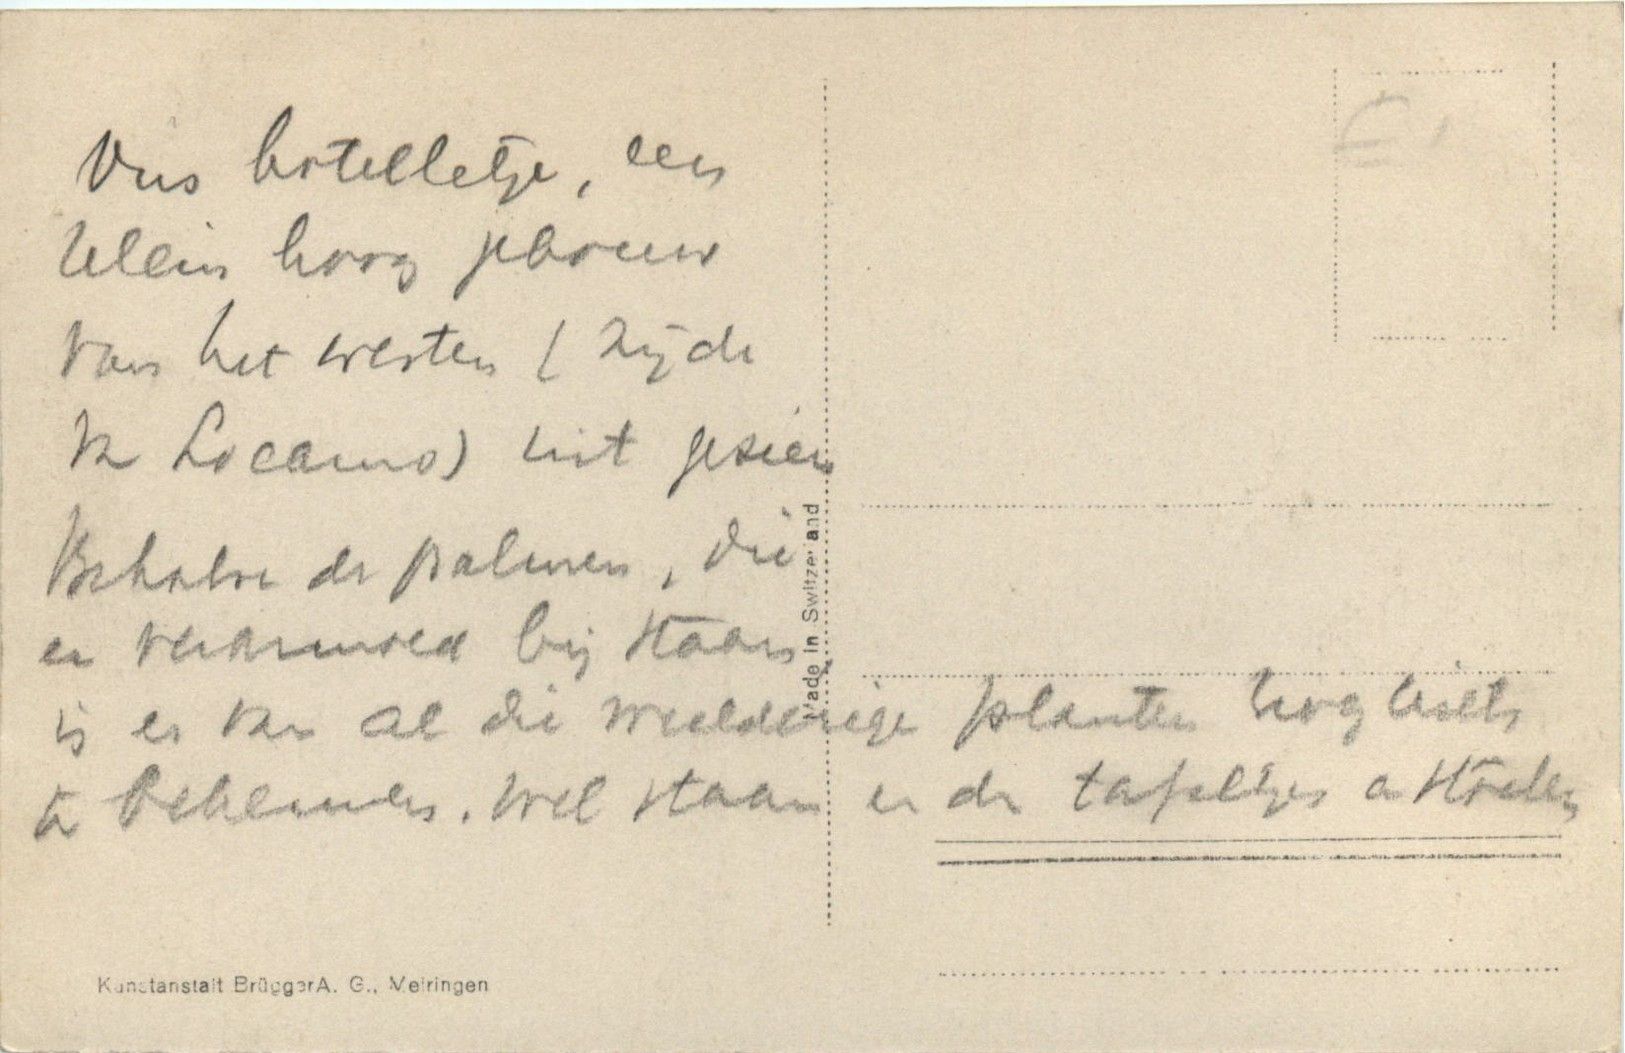 Ons hotelletje, een
klein hoog gebouw
van het westen (zijde
v. Locarno) uit gezien
Behalve de palmen, die
er verarmoed bij staan
is er van al die weelderige planten nog niets
te bekennen. Wel staan er de tafeltjes en stoelen
Made in Switzerland
Kunstanstalt Brügger A. G., Meiringen